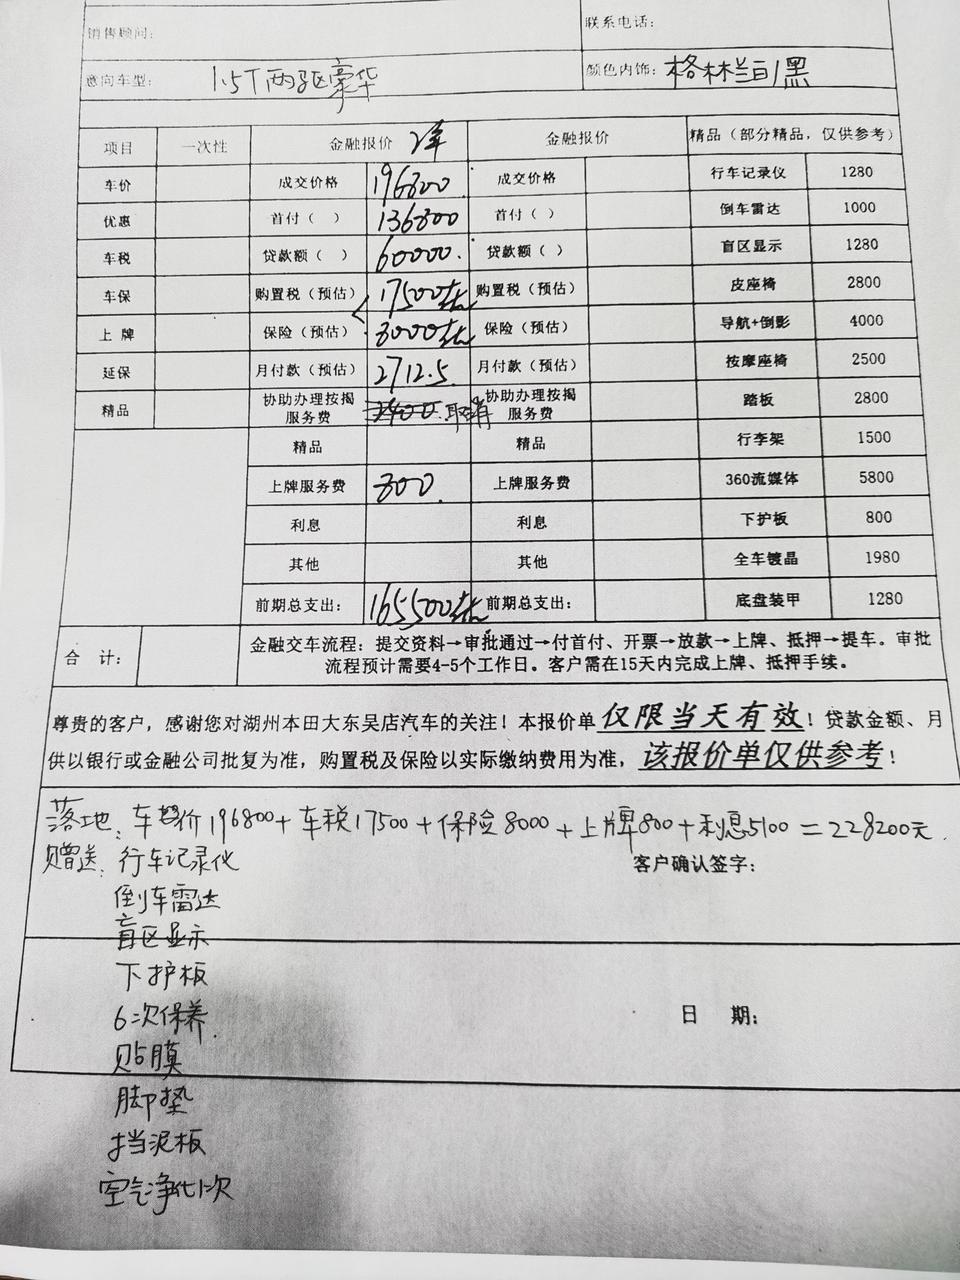 销售顾问: 联系电话:
意向车型: 1.5T两驱豪华 颜色内饰: 格林兰白/黑
项目 一次性 金融报价 2年 金融报价 精品（部分精品，仅供参考）
车价 成交价格 196800 成交价格 行车记录仪 1280
优惠 首付（ ） 136800 首付（ ） 倒车雷达 1000
车税 贷款额（ ） 60000. 贷款额（ ） 盲区显示 1280
车保 购置税（预估） 17500左右 购置税（预估） 皮座椅 2800
上 牌 保险（预估） 8000左右 保险（预估） 导航+倒影 4000
延保 月付款（预估） 2712.5 月付款（预估） 按摩座椅 2500
精品 协助办理按揭服务费 2400 取消 协助办理按揭服务费 踏板 2800
精品 精品 行李架 1500
上牌服务费 800. 上牌服务费 360流媒体 5800
利息 利息 下护板 800
其他 其他 全车镀晶 1980
前期总支出: 165500左右 前期总支出: 底盘装甲 1280
合 计: 金融交车流程: 提交资料→审批通过→付首付、开票→放款→上牌、抵押→提车。审批
流程预计需要4-5个工作日。客户需在15天内完成上牌、抵押手续。
尊贵的客户，感谢您对湖州本田大东吴店汽车的关注！本报价单仅限当天有效！贷款金额、月
供以银行或金融公司批复为准，购置税及保险以实际缴纳费用为准，该报价单仅供参考！
落地: 车价196800+车税17500+保险8000+上牌800+利息5100=228200元.
赠送: 行车记录仪 客户确认签字:
倒车雷达
盲区显示
下护板
6次保养. 日 期:
贴膜
脚垫
挡泥板
空气净化1次